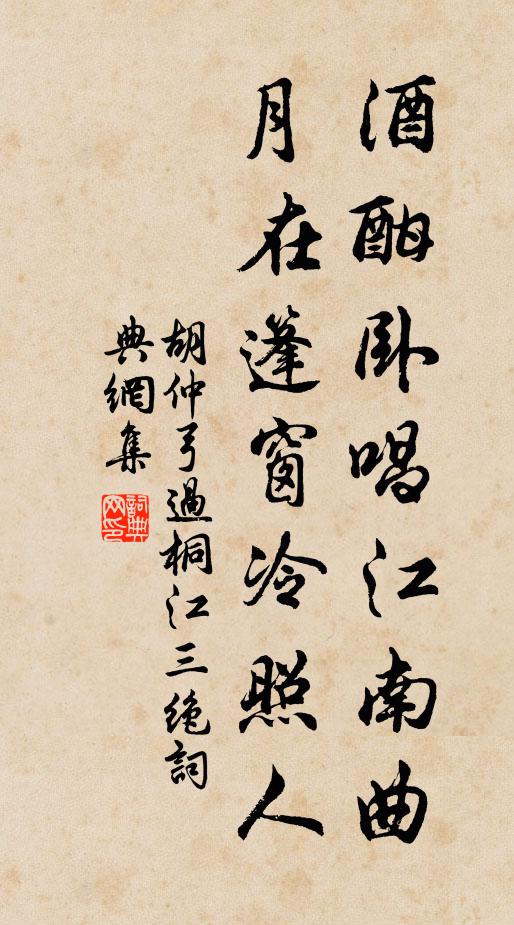 酒酣卧唱江南曲
月在篷窗冷照人
胡仲弓過桐江三绝詞
典網集
詞典網印